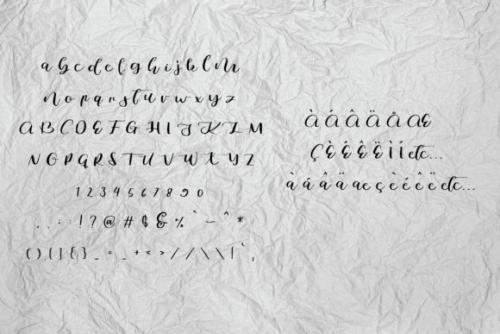 a b c d e f g h i j k l m
n o p q r s t u v w x y z
A B C D E F G H I J K L M
N O P Q R S T U V W X Y Z
1 2 3 4 5 6 7 8 9 0
. , : ; ! ? @ # $ & % ` ~ ^ *
( ) [ ] { } _ = _ + < > / / \ \ | ` ,
À Á Â Ä Å Æ
Ç È É Ê Ë Ì Í etc...
à á â ä æ ç è é ê ë etc...